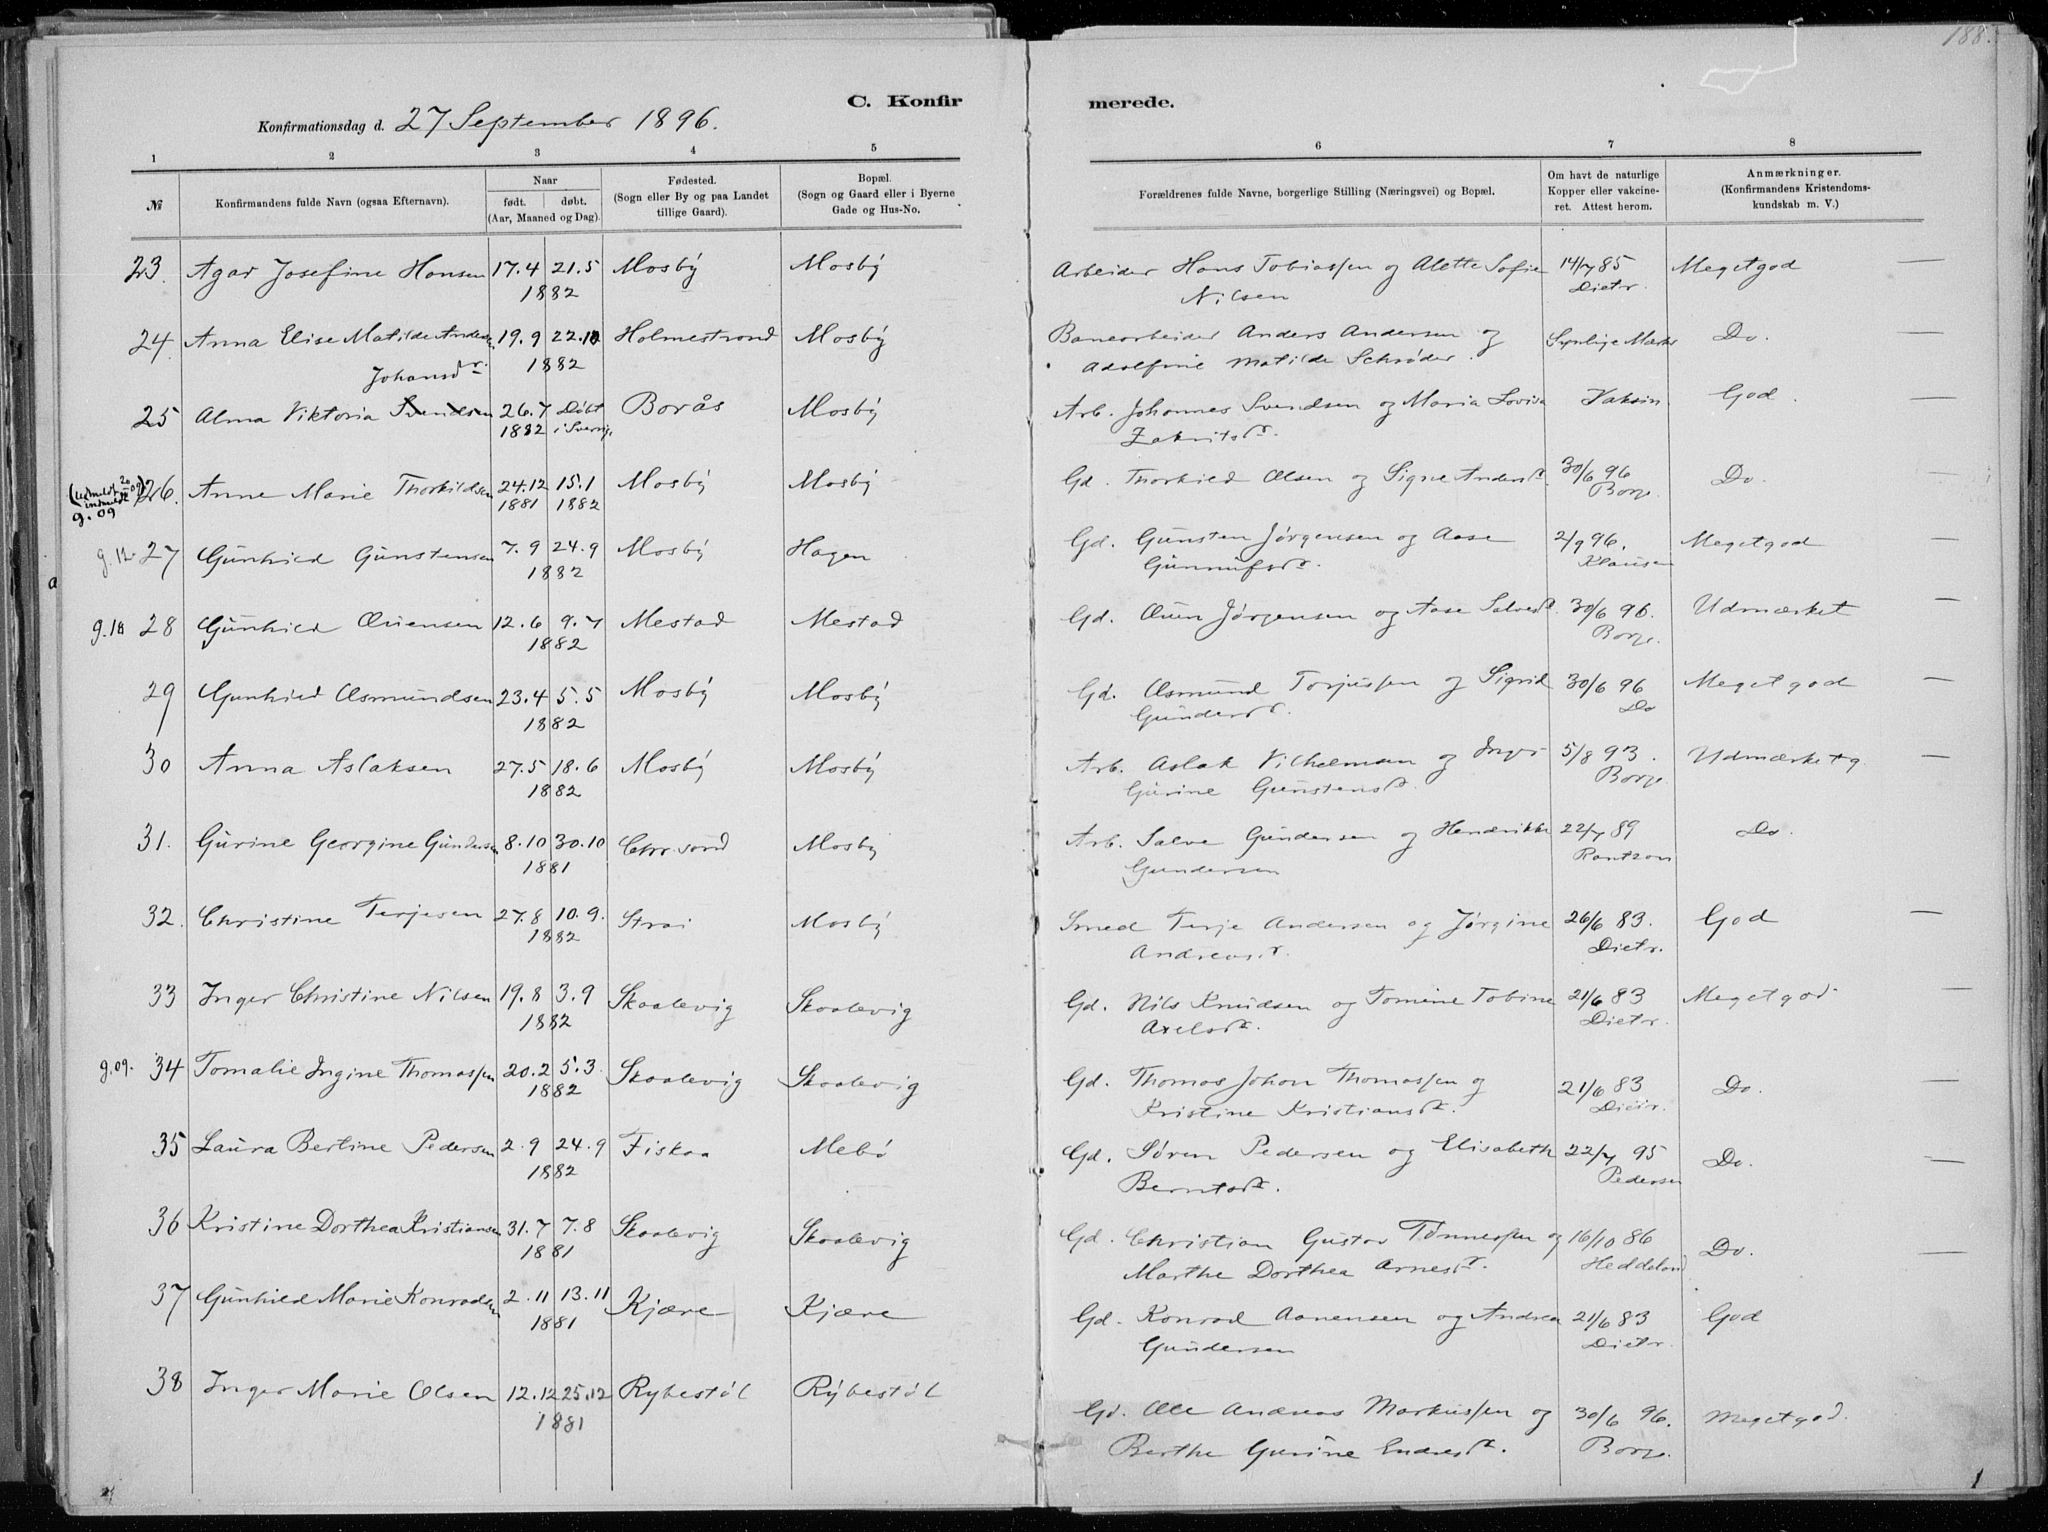 188.
C. Konfirmerede.
Konfirmationsdag d. 27 September 1896.
1 2 3 4 5 6 7 8
№ Konfirmandens fulde Navn (ogsaa Efternavn). Naar født. døbt. (Aar, Maaned og Dag). Fødested. (Sogn eller By og paa Landet tillige Gaard). Bopæl. (Sogn og Gaard eller i Byerne Gade og Hus-No. Forældrenes fulde Navne, borgerlige Stilling (Næringsvei) og Bopæl. Om havt de naturlige Kopper eller vakcineret. Attest herom. Anmærkninger. (Konfirmandens Kristendomskundskab m. V.)
23. Agar Josefine Hansen 17.4 21.5 Mosby Mosby Arbeider Hans Tobiassen og Alette Sofie 14/7 85 Megetgod —
1882 Nilsen Dietr.
24. Anna Elise Matilde Andersen 19.9 22.10 Holmestrand Mosby Banearbeider Anders Andersen og Synlige Mærker Do. —
1882 Adolfine Matilde Schrøder.
Johansdr.
25 Alma Viktoria Svendsen 26.7 Døbt Borås Mosby Arb. Johannes Svendsen og Maria Lovisa Vaksin God. —
1882 i Sverig. Zakritsdr.
(Udmeldt 20 09) indmeldt g. 09
26. Anne Marie Thorkildsen 24.12 15.1 Mosby Mosby Gd. Thorkild Olsen og Signe Andersdr. 30/6 96 Do. —
1881 1882 Borge.
g. 12. 27 Gunhild Gunstensen 7.9 24.9 Mosby Hagen Gd. Gunsten Jørgensen og Aase 2/9 96. Megetgod —
1882 Gunnufsdr. Klausen
g. 10 28 Gunhild Ouensen 12.6 9.7 Mestad Mestad Gd. Ouen Jørgensen og Aase Salvesdr. 30/6 96. Udmærket —
1882 Borge.
29 Gunhild Osmundsen 23.4 5.5 Mosby Mosby Gd. Osmund Torjussen og Sigrid 30/6 96 Megetgod —
1882 Gundersdr. Do
30 Anna Aslaksen 27.5 18.6 Mosby Mosby Arb. Aslak Vilhelmsen og Inger 5/8 93. Udmærket g. —
1882 Gurine Gunstensdr. Borge
31. Gurine Georgine Gundersen 8.10 30.10 Chr.sand Mosby Arb. Salve Gundersen og Hendrikke 22/7 89 Do. —
1881 Gundersen Rantzon
32. Christine Terjesen 27.8 10.9. Strai Mosby Smed Terje Andersen og Jørgine 26/6 83. God —
1882 Andreasdr. Dietr.
33 Inger Christine Nilsen 19.8 3.9 Skaalevig Skaalevig Gd. Nils Knudsen og Tomine Tobine 21/6 83 Megetgod —
1882 Axelsdr. Dietr.
g. 09. 34 Tomalie Ingine Thomassen 20.2 5.3. Skaalevig Skaalevig Gd. Thomas Johan Thomassen og 21/6 83 Do. —
1882 Kristine Kristiansdr. Dietr.
35 Laura Bertine Pedersen 2.9 24.9 Fiskaa Mebø Gd. Søren Pedersen og Elisabeth 22/7 95 Do. —
1882 Berntsdr. Pedersen
36 Kristine Dorthea Kristiansen 31.7 7.8 Skaalevig Skaalevig Gd. Christian Gustav Tønnessen og 16/10 86 Do. —
1881 Marthe Dorthea Arnesdr. Heddeland
37 Gunhild Marie Konradsen 2.11 13.11 Kjære Kjære Gd. Konrad Aanensen og Andrea 21/6 83 God —
1881 Gundersen Dietr.
38 Inger Marie Olsen 12.12 25.12 Rybestøl Rybestøl Gd. Ole Andreas Markussen og 30/6 96. Megetgod. —
1881 Berthe Gurine Endresdr. Borge.